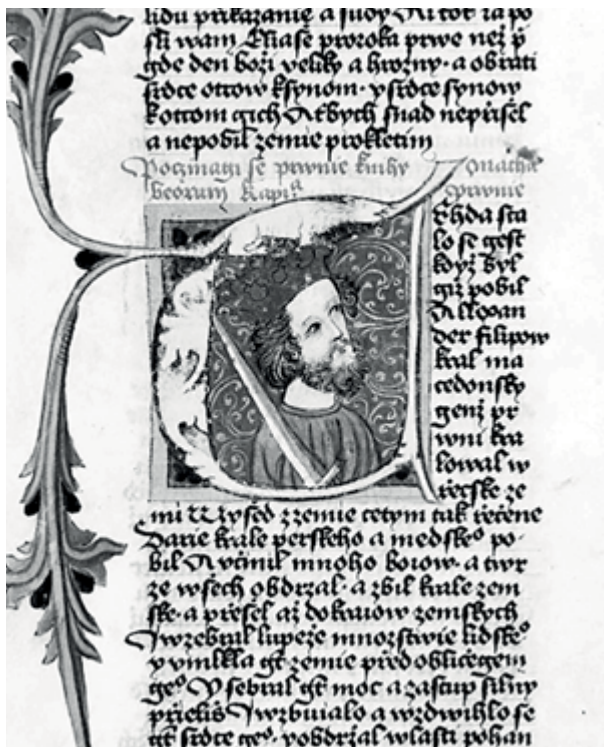 lidu přikazanie a sudy Ai tot ia po
sli wam Eliase proroka prwe než p
gde den boži weliky a hrozny · a obrati
srdce otcow ksynom · y srdce synow
kotcom gich Abych snad nepřisel
a nepobil zemie prokletim
Poczinagi se prwnie knihy Macha
beorum Kapi<sup>a</sup> Prwnie
Thda sta
lo se gest
když byl
giž pobil
Allexan
der filipow
kral ma
cedonsky
genž pr
wni kra
lowal w
řecske ze
mi Wyssed z zemie cetym tak řečene
Darie krale perskeho a medske<sup>o</sup> po-
bil A včinil mnoho bojow · a twr
ze wsech obdržal · a zbil krale zem
ske · a přesel až do kraiow zemskych
I wzebral lupeže množstwie lidske<sup>o</sup>
y vmlkla gt zemie před obličegem
ge<sup>o</sup> Y sebral gt moc a zastup silny
přielis I wzbuialo a wzdwihlo se
gt srdce ge<sup>o</sup> · y obdržal wlasti pohan